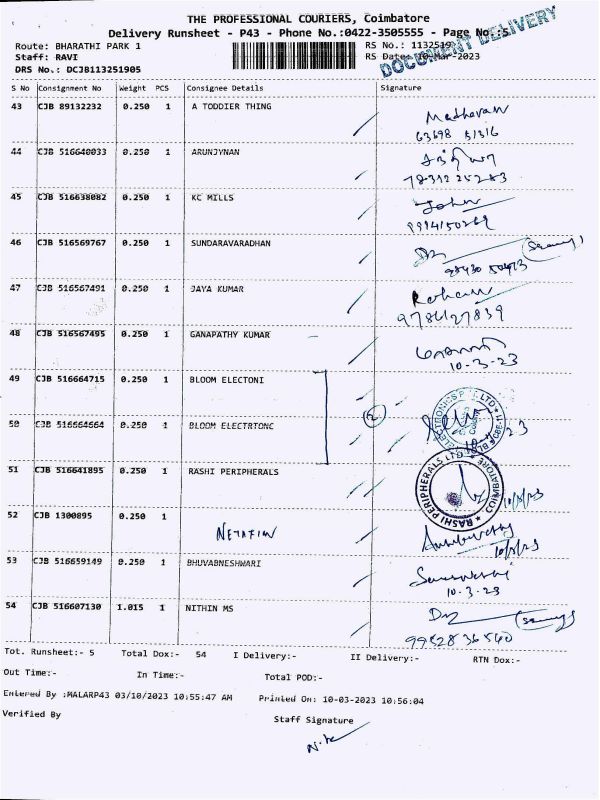 THE PROFESSIONAL COURIERS, Coimbatore
Delivery Runsheet - P43 - Phone No.:0422-3505555 - Page No.:5
DOCUMENT DELIVERY
Route: BHARATHI PARK 1
RS No.: 1132519
Staff: RAVI
RS Date: 10-Mar-2023
DRS No.: DCJB113251905
S No Consignment No Weight PCS Consignee Details Signature
43 CJB 89132232 0.250 1 A TODDIER THING
Madhavan
63698 51316
44 CJB 516640033 0.250 1 ARUNJYNAN
45 CJB 516638082 0.250 1 KC MILLS
John
9994150269
46 CJB 516569767 0.250 1 SUNDARAVARADHAN
47 CJB 516567491 0.250 1 JAYA KUMAR
9786127839
48 CJB 516567495 0.250 1 GANAPATHY KUMAR
10-3-23
49 CJB 516664715 0.250 1 BLOOM ELECTONI
2
50 CJB 516664664 0.250 1 BLOOM ELECTRTONC
51 CJB 516641895 0.250 1 RASHI PERIPHERALS
RASHI PERIPHERALS LTD. COIMBATORE
10/3/23
52 CJB 1300895 0.250 1
10/3/23
53 CJB 516659149 0.250 1 BHUVABNESHWARI
10-3-23
54 CJB 516607130 1.015 1 NITHIN MS
99828 36540
Tot. Runsheet:- 5 Total Dox:- 54 I Delivery:- II Delivery:- RTN Dox:-
Out Time:- In Time:- Total POD:-
Entered By :MALARP43 03/10/2023 10:55:47 AM Printed On: 10-03-2023 10:56:04
Verified By Staff Signature